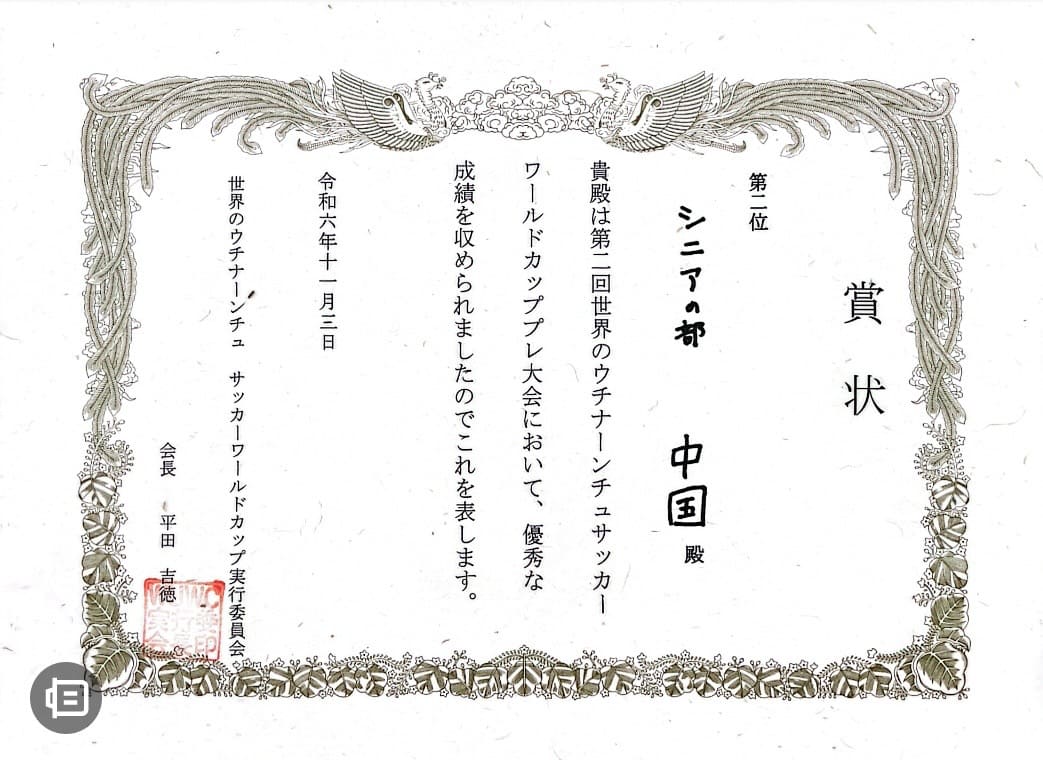 賞状
第二位
シニアの部　中国 殿
貴殿は第二回世界のウチナーンチュサッカー
ワールドカッププレ大会において、優秀な
成績を収められましたのでこれを表します。
令和六年十一月三日
世界のウチナーンチュ　サッカーワールドカップ実行委員会
会長　平田　吉徳